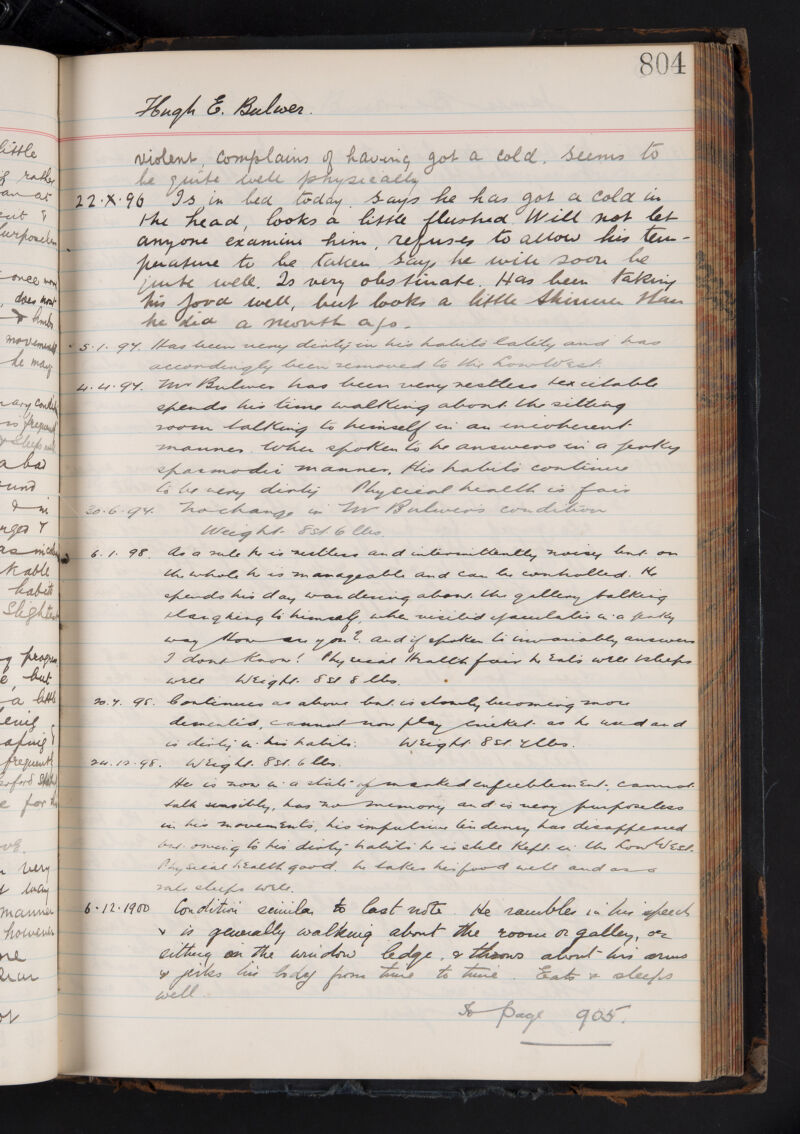 804
Hugh E. Bulwer.
violent, complains of having got a cold. Seems to
be quite well physically
22.X.96 Is in bed today. Says he has got a cold in
the head, looks a little flushed Will not let
anyone examine him, refuses to allow his tem-
perature to be taken says he will soon be
quite well. Is very obstinate. Has been taking
his food well, but looks a little thinner than
he did a month ago.
5.1.97. Has been very dirty in his habits lately and has
accordingly been removed to the Low West.
4.4.97. Mr Bulwer has been very restless & excitable
spends his time walking about the sitting
room talking to himself in an incoherent
manner. When spoken to he answers in a jerky
spasmodic manner. His habits continue
to be very dirty Physical health is fair
20.6.97. No change in Mr Bulwer's condition
Weight 8st 6 lbs.
6.1.98. As a rule he is restless and intermittently noisy but on
the whole he is manageable and can be controlled. He
spends his day wandering about the gallery talking
& laughing to himself, when visited ejaculates in a jerky
way How are you? and if spoken to invariably answers
I dont know! Physical Health fair he eats well & sleeps
well Weight 8st 8 lbs.
20.7.98. Continues as above but is slowly becoming more
demented, cannot now play cricket as he used and
is dirty in his habits. Weight 8st 7lbs.
24.12.98. Weight 8st. 6 lbs.
He is now in a state of marked enfeeblement, cannot
talk sensibly, has no memory and is very purposeless
in his movements, his impulsive tendency has disappeared
but owing to his dirty habits he is still kept in the Low West.
Physical health good he takes his food well and as a
rule sleeps well.
6.12.1900 Condition similar to last note. He rambles in his speech
& is generally walking about the room or gallery, or
sitting on the window ledge, & throws about his arms
& jerks his body from time to time. Eats & sleeps
well.
To page 905.